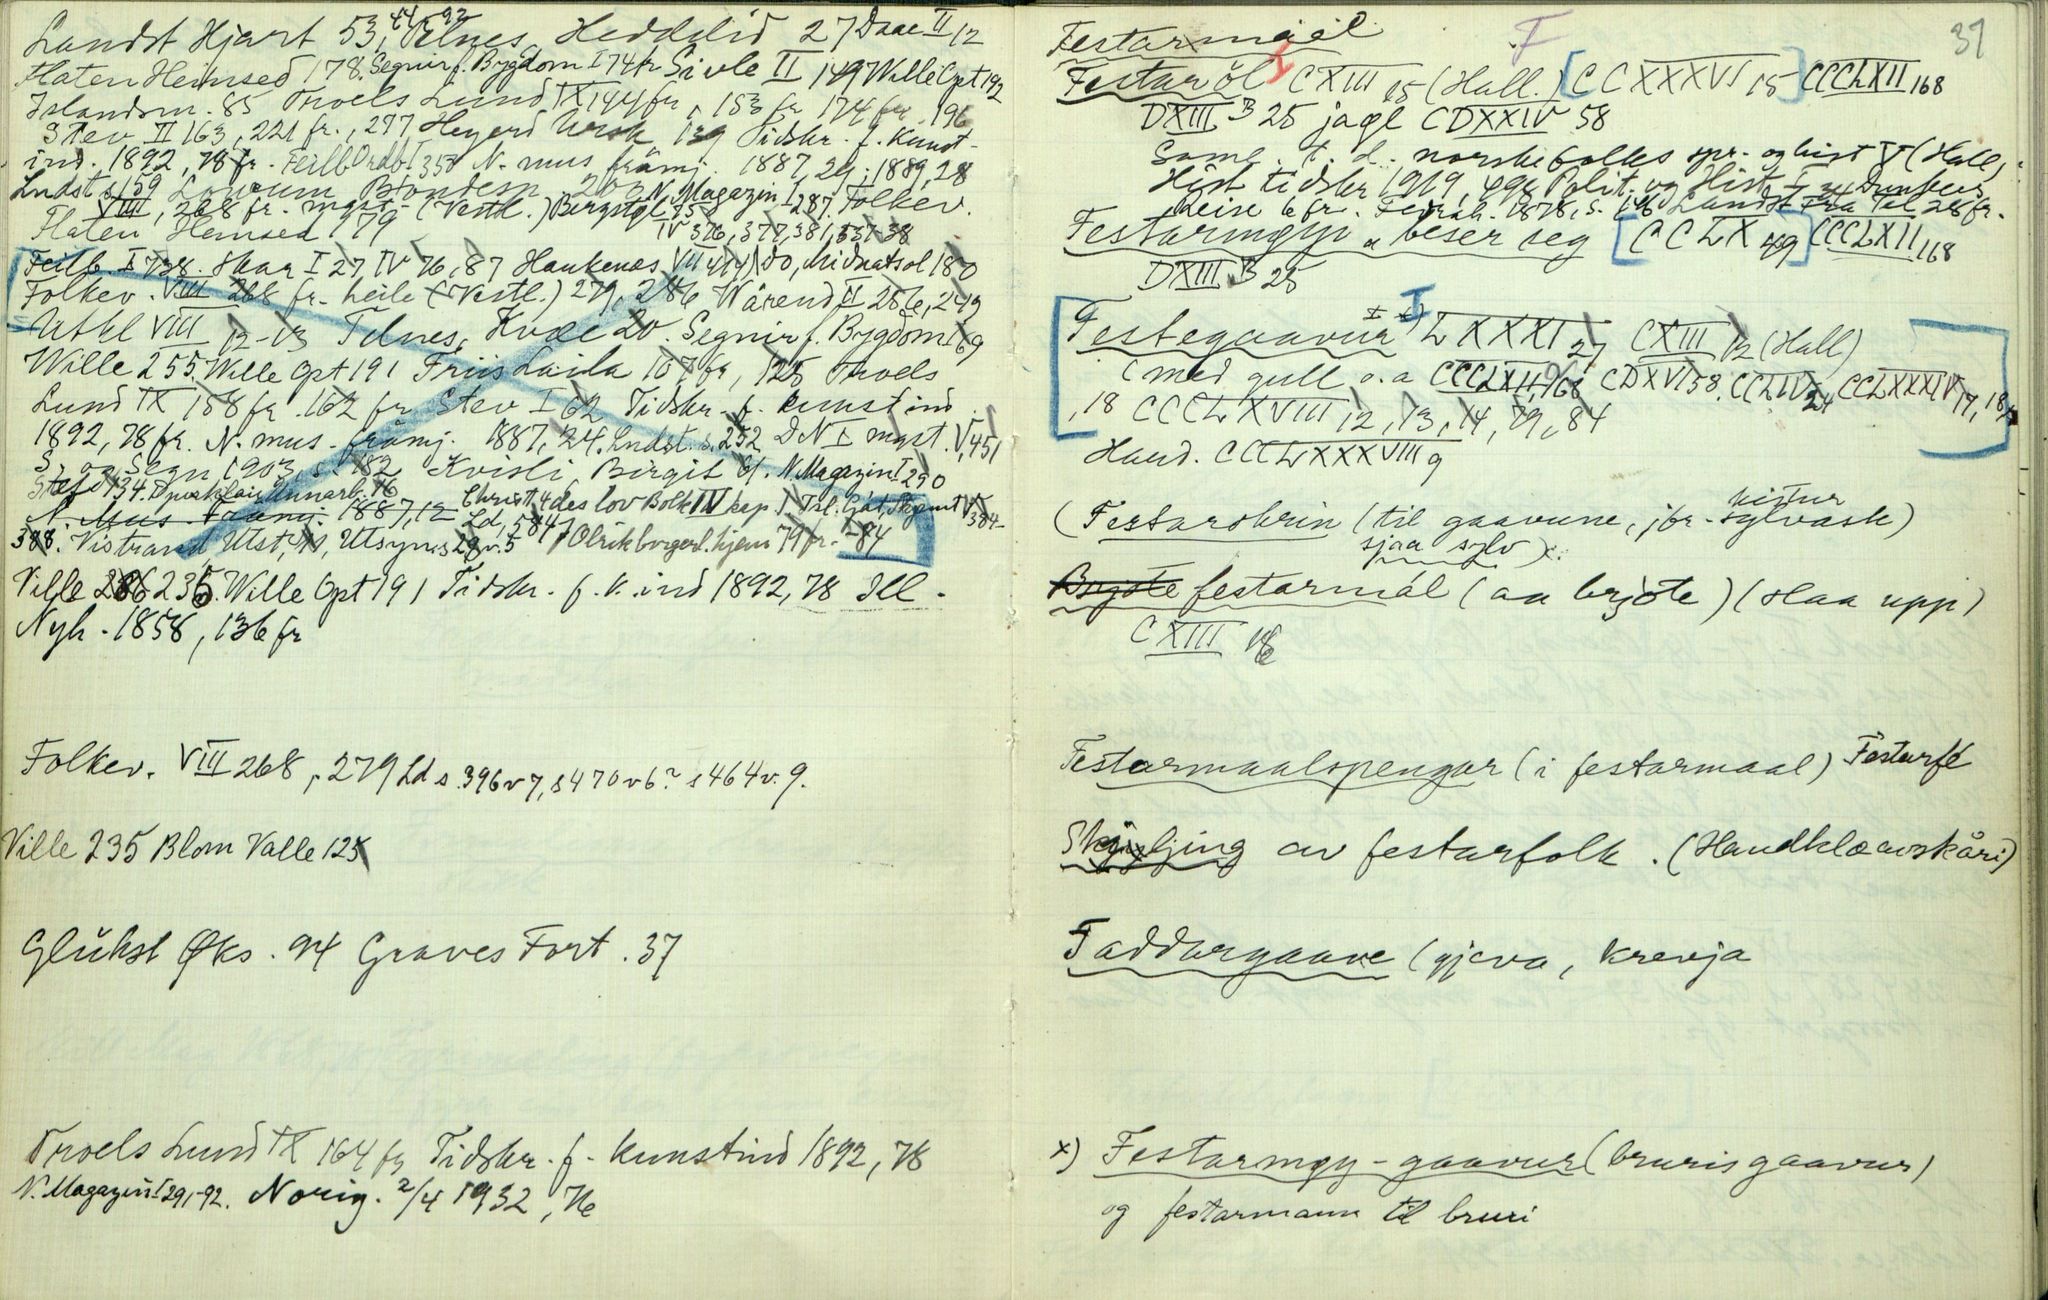 Landst Hjart 53, 44, 92 Telnes Heddelid 27 Daae II 12
Flaten Heimsed 178. Segnir f. Bygdom I 74 fr Sivle II 149 Wille Opt 192
Islandsm. 85 Troels Lund IX 144 fr, 153 fr 174 fr. 196
Stev II 163, 221 fr., 277 Heyerd Ursk 139 Tidskr. f. Kunst-
ind. 1892, 78 fr. Feilb Ordb. I 353 N. mus främj. 1887, 24; 1889, 28
Lndst s 159 Bondesn 202 N. Magazin I 287. Folkev.
VIII, 268 fr. mgst. (Vestl.) Bergstøl 95
Flaten Heimsed 179 IV 376, 377, 381, 537-38
Feilb I 738. Skar I 27, IV 76, 87 Haukenæs VII Midnatsol 180
Folkev. VIII 268 fr. heile (Vestl.) 279, 286 Wärend II 256, 249
Utkl VIII 12-13 Telnes, Kvæe 20. Segnir f. Bygdom I 69
Wille 255. Wille Opt 191 Friis Laila 107 fr, 125 Troels
Lund IX 158 fr. 162 fr Stev I 62 Tidskr. f. kunstind.
1892, 78 fr. N. mus. främj. 1887, 24. Lndst. s. 252 DN I mgst. V, 451
S. og Segn 1903, s. 182 Kvisli Birgit 61. N Magazin I 290
N. Mus. främj. 1887, 12 Ld, 584 Christ. 4des lov Bolk IV kap. 1
388. Vistrand Utst, Utsyn s 28 v. 5 Olrik borgerl. hjem 79 fr. -84
Ville 286 235. Wille Opt 191 Tidskr. f. k. ind 1892, 78 Ill.
Nyh. 1858, 136 fr
Folkev. VIII 268, 279 Ld s. 396 v 7, s 470 v 6? s 464 v. 9.
Ville 235 Blom Valle 125
Glükst Øks. 94 Graves Fort. 37
Troels Lund IX 164 fr Tidskr. f. kunstind 1892, 78
N. Magazin I 291-92. Norig. 2/4 1932, 76
37
F
Festarmaal
Festarøl CXIII 15 (Hall.) [CCXXXVI 15] CCCLXII 168
DXIII B 25 jagl CDXXIV 58
Saml. t. d. norske folks spr. og hist V (Hall)
Hist tidskr 1919, 498 Polit. og Hist I Dunker
Reise 6 fr. Fedrah. 1878, s. 148 Landst Fra Tel 28 fr.
Festarmøy, beser seg [CCLX 49] CCCLXII 168
DXIII B 25
[Festegaavur x) I LXXXI 27 CXIII 12 (Hall)
(med gull o. a CCCLXII, 168 CDXVI 58. CCLIV 24 CCLXXXIV 17, 18
, 18 CCCLXVIII 12, 13, 14, 79, 84]
Haud. CCCLXXXVIII 9
(Festarskrin (til gaavune, jfr. kistur sylvask)
sjaa sylv)
Brjote festarmål (aa brjote) (slaa upp)
CXIII 16
Festarmaalspengar (i festarmaal) Festarfe
Skyling av festarfolk. (Handklæavskåri)
Faddargaave (gjeva, krevja
x) Festarmøy-gaavur (brurisgaavur)
og festarmann til bruri